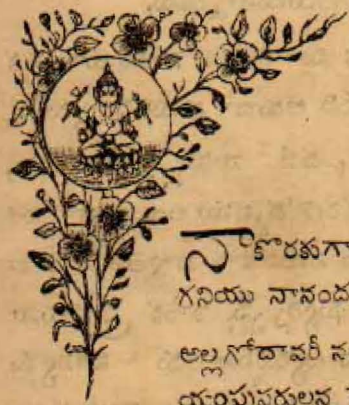 నాకొరకుగా
గనియు నానంద
అల్లగోదావరీ న
యంపుసరులన